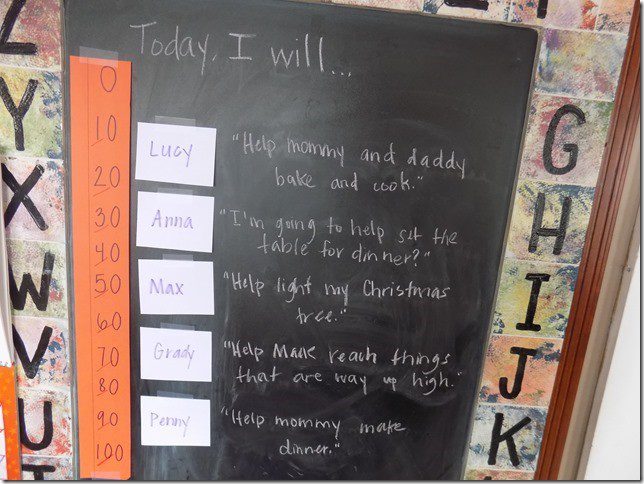 Today, I will...
0
10
20
30
40
50
60
70
80
90
100
Lucy
"Help mommy and daddy
bake and cook."
Anna
"I'm going to help set the
table for dinner?"
Max
"Help light my Christmas
tree."
Grady
"Help Maak reach things
that are way up high."
Penny
"Help mommy make
dinner."
Z
Y
X
W
V
U
T
G
H
I
J
K